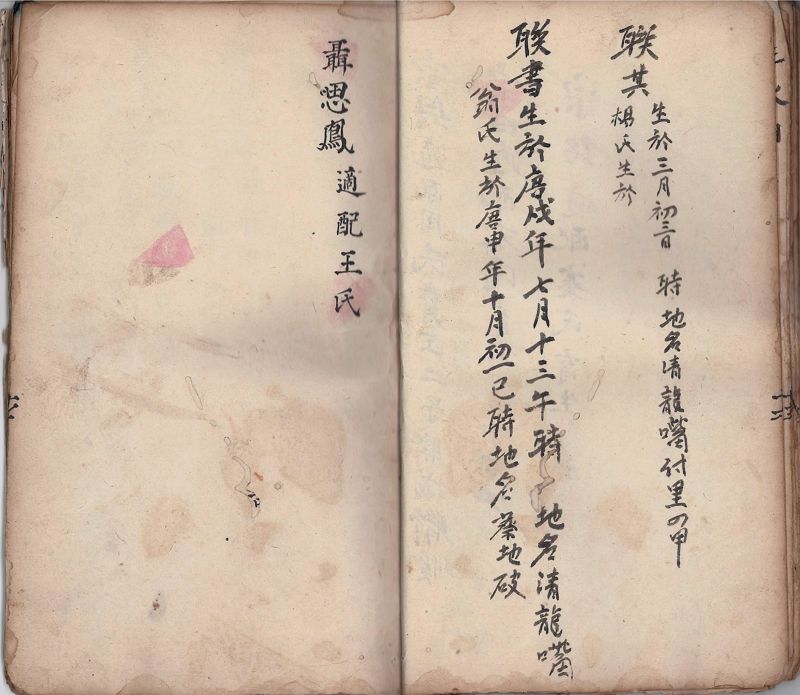 聯其
生於三月初三日 時 地名清龍嘴付里四甲
楊氏生於
聯書生於庚戌年七月十三午時 地名清龍嘴
翁氏生於庚申年十月初一巳時地名蔡地破
聶思鳳適配王氏